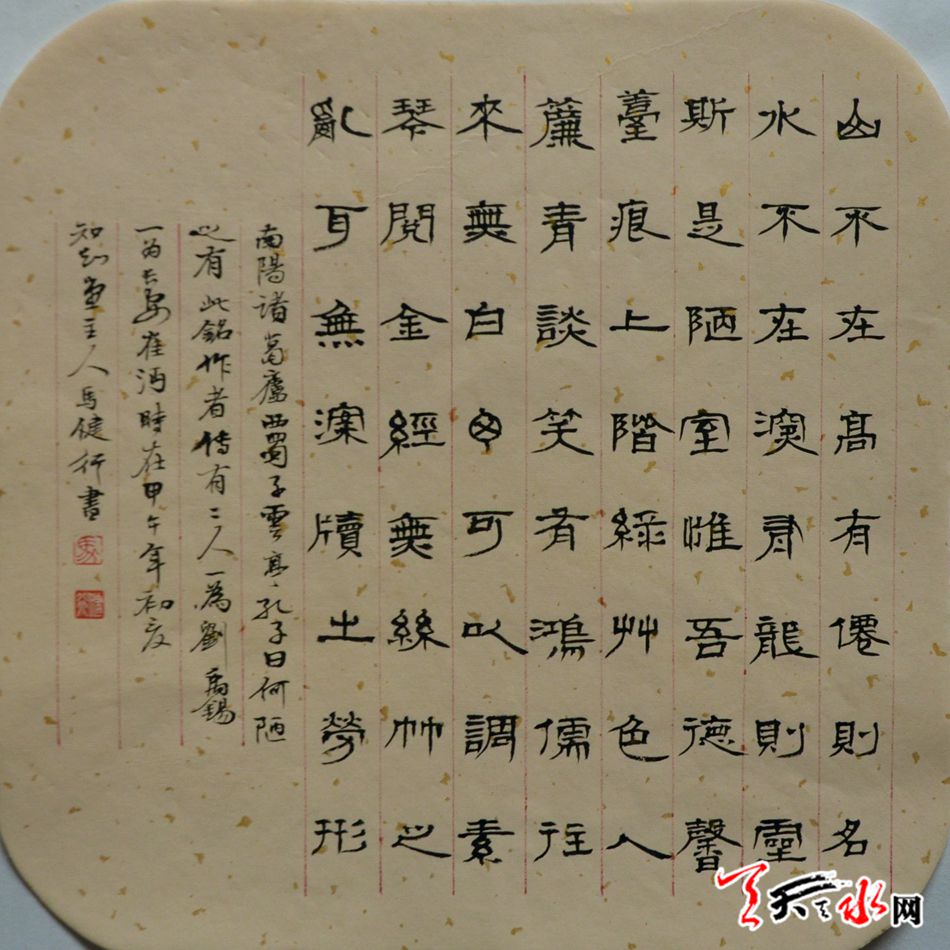 山不在高有僊則名
水不在深有龍則靈
斯是陋室惟吾德馨
臺痕上階綠艸色入
簾青談笑有鴻儒往
來無白丁可以調素
琴閱金經無絲竹之
亂耳無案牘之勞形
南陽諸葛廬西蜀子雲亭孔子曰何陋
之有此銘作者傳有二人一為劉禹錫
一為長安崔沔時在甲午年初夏
知知堂主人馬健行書
天天天水网